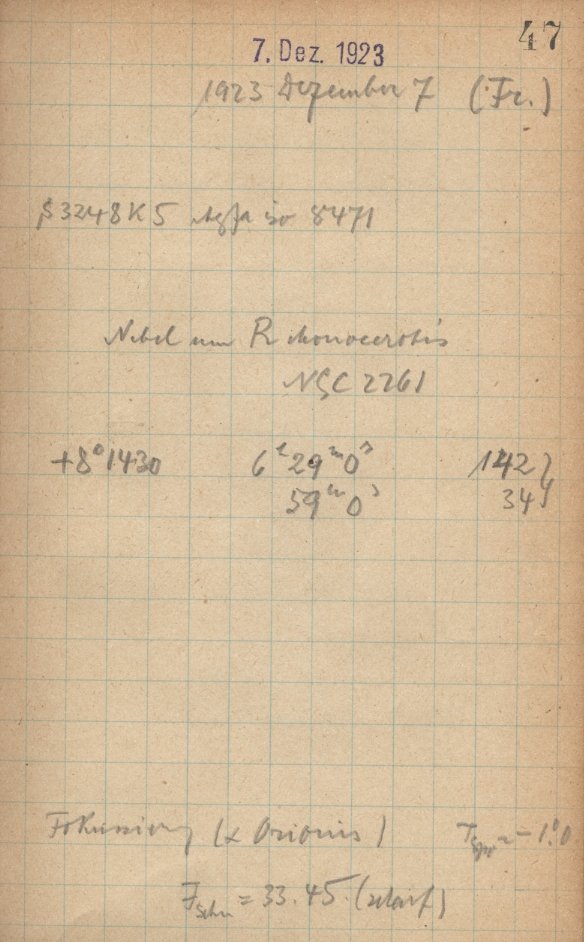 47
7. Dez. 1923
1923 Dezember 7 (Fr.)
S3248K5 Agfa iso 8471
Nebel um R Monocerotis
NGC 2261
+8°1430 6ʰ29ᵐ0ˢ 142}
59ᵐ0ˢ 34}
Fokussierung (α Orionis) T = -1.°0
F = 33.45 (scharf)